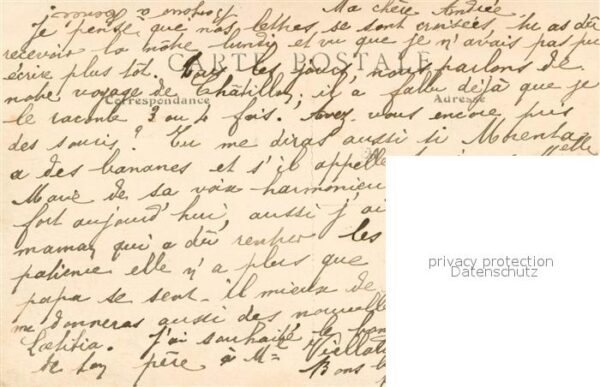 Ma chère Andrée
je pense que nos lettres se sont croisées, tu as dû
recevoir la nôtre lundi et vu que je n'avais pas pu
écrire plus tôt. Tous les jours, nous parlons de
CARTE POSTALE
notre voyage de Châtillon, il a fallu déjà que je
Correspondance
Adresse
le raconte 3 ou 4 fois. Avez vous encore pris
des souris? Tu me diras aussi si
a des bananes et s'il appelle
Marie de sa voix harmonieu
fort aujourd'hui, aussi j'ai
maman qui a dû rentrer les
patience elle n'a plus que
papa se sent-il mieux de
me donneras aussi des nouvelle
Lætitia. J'ai souhaité
de ton père à Mme
Bons
privacy protection
Datenschutz